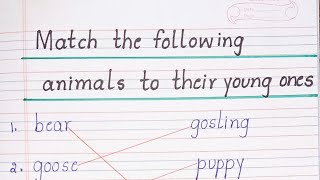 Match the following
animals to their young ones
1. bear gosling
2. goose puppy